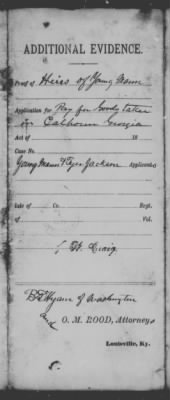 ADDITIONAL EVIDENCE.
Proof of Heirs of Young Mann
Application for Pay for Goods taken
in Calhoun Georgia
Act of 18
Case No.
Young Mann & Jackson Applicants
late of Co. Regt.
of Vol.
Craig
of Washington
and O. M. ROOD, Attorneys
Louisville, Ky.
5